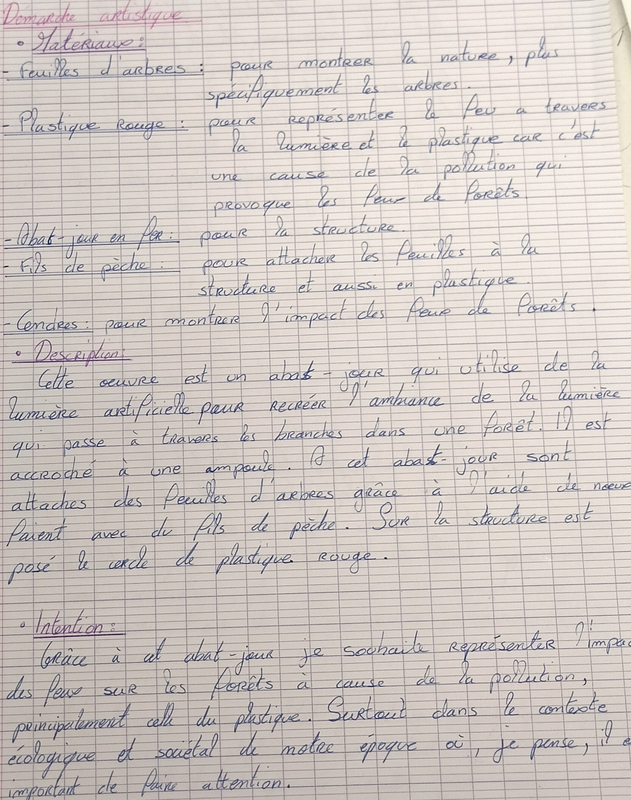 Demarche artistique
• Matériaux:
- Feuilles d'arbres : pour montrer la nature, plus
spécifiquement les arbres.
- Plastique Rouge : pour représenter le feu a travers
la lumière et le plastique car c'est
une cause de la pollution qui
provoque les feux de forêts.
- Abat-jour en fer : pour la structure.
- Fils de pèche : pour attacher les feuilles à la
structure et aussi en plastique.
- Cendres : pour montrer l'impact des feux de forêts.
• Description:
Cette oeuvre est un abat-jour qui utilise de la
lumière artificielle pour recréer l'ambiance de la lumière
qui passe à travers les branches dans une forêt. Il est
accroché à une ampoule. A cet abat-jour sont
attaches des feuilles d'arbres grâce à l'aide de
faient avec du fils de pèche. Sur la structure est
posé le cercle de plastique rouge.
• Intention :
Grâce à cet abat-jour je souhaite représenter l'impac
des feux sur les forêts à cause de la pollution,
principalement celle du plastique. Surtout dans le contexte
écologique et sociétal de notre époque où, je pense, il e
important de faire attention.